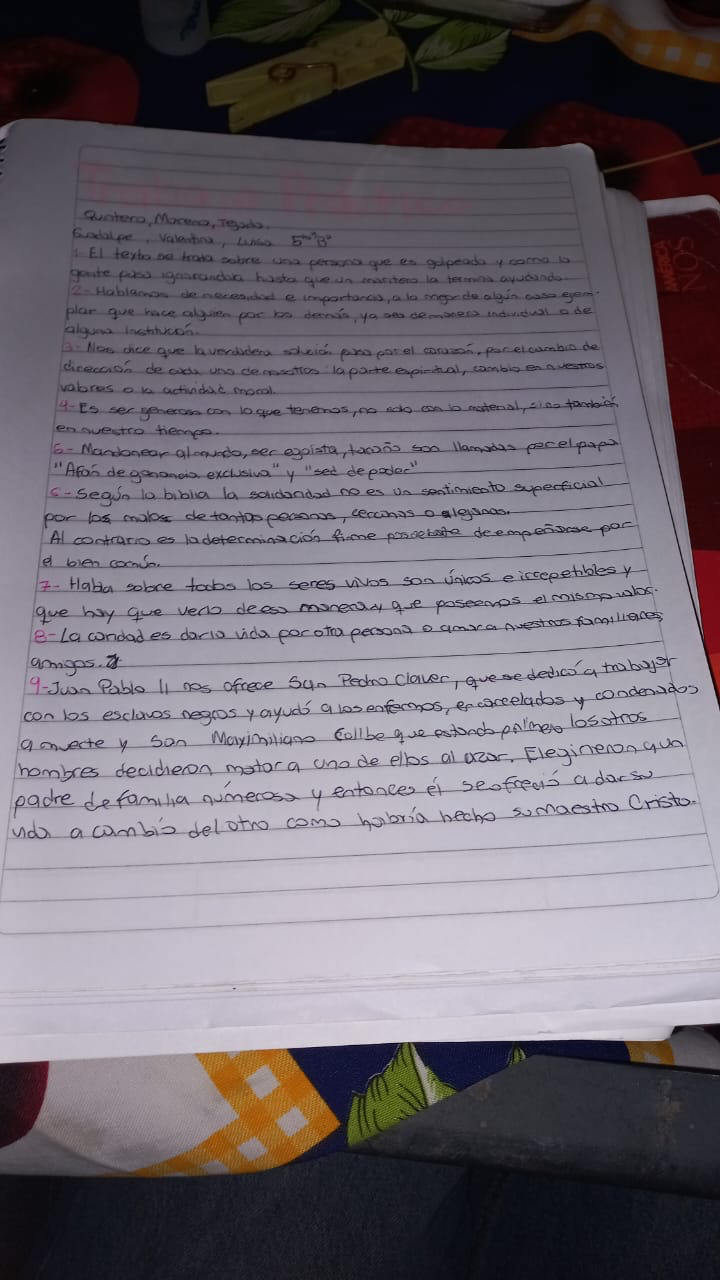 Trabajo Práctico
Quintero, Moreno, Tejada.
Guadalpe, Valentina, Luisa 5to "B"
1- El texto se trata sobre una persona que es golpeada y como la
gente pasa ignorandola hasta que un maritero la termina ayudando.
2- Hablamos de necesidad e importancia, a lo mejor de algún caso ejem-
plar que hace alguien por los demás, ya sea de manera individual o de
alguna institución.
3- Nos dice que la verdadera solución pasa por el corazón, por el cambio de
dirección de cada uno de nosotros la parte espiritual, cambio en nuestros
valores o la actividad moral.
4- Es ser generoso con lo que tenemos, no solo con lo material, sino también
en nuestro tiempo.
5- Mandonear al mundo, ser egoista, tacaño son llamadas por el papa
"Afán de ganancia exclusiva" y "sed de poder"
6- Según la biblia la solidaridad no es un sentimiento superficial
por los males de tantas personas, cercanas o alejanas.
Al contrario es la determinación firme de empeñarse por
el bien común.
7- Habla sobre todos los seres vivos son únicos e irrepetibles y
que hay que verlo de esa manera y que poseemos el mismo valor.
8- La caridad es dar la vida por otra persona o amar a nuestros familiares
amigos.
9- Juan Pablo II nos ofrece San Pedro Claver, que se dedicó a trabajar
con los esclavos negros y ayudó a los enfermos, encarcelados y condenados
a muerte y San Maximiliano Colbe que estando los otros
hombres decidieron matar a uno de ellos al azar. Elegineron a un
padre de familia númerosa y entonces él se ofreció a dar su
vida a cambio del otro como habría hecho su maestro Cristo.
AMÉRICA
NOS